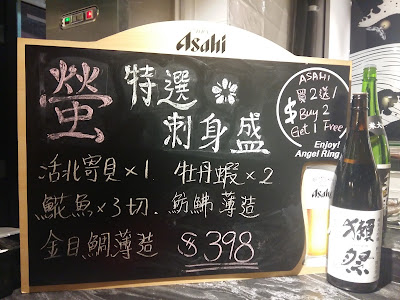 Asahi
螢 特選
刺身盛
ASAHI
買2送1
$ Buy 2
Get 1 Free
Enjoy!
Angel Ring
活北寄貝×1 牡丹蝦×2
鯤魚×3切、魴鮄薄造
金目鯛薄造 $398
Asahi
獺祭